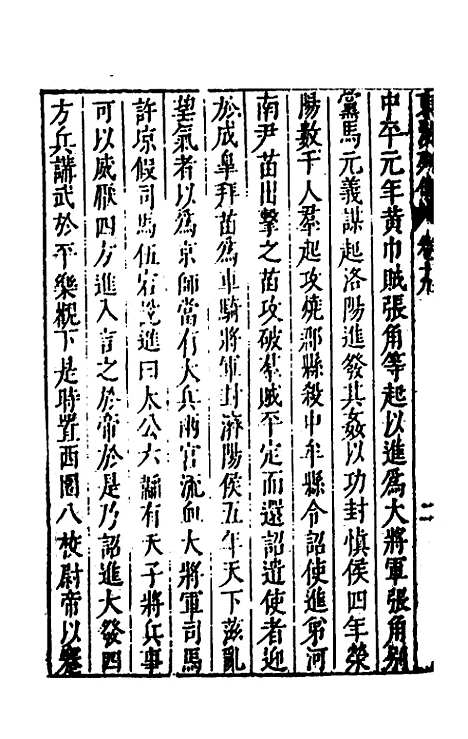 東漢列傳 卷十九 二
中平元年黄巾賊張角等起以進爲大將軍張角别
黨馬元義謀起洛陽進發其姦以功封愼侯四年滎
陽數千人羣起攻燒郡縣殺中牟縣令詔使進弟河
南尹苗出擊之苗攻破羣賊平定而還詔遣使者迎
於成皐拜苗爲車騎將軍封濟陽侯五年天下滋亂
望氣者以爲京師當有大兵兩宫流血大將軍司馬
許凉假司馬伍宕説進曰太公六韜有天子將兵事
可以威厭四方進入言之於帝於是乃詔進大發四
方兵講武於平樂觀下是時置西園八校尉帝以蹇